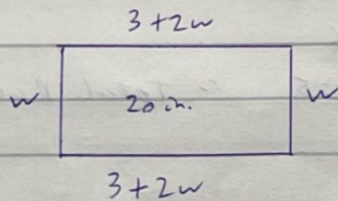 3+2w
w 20 in. w
3+2w